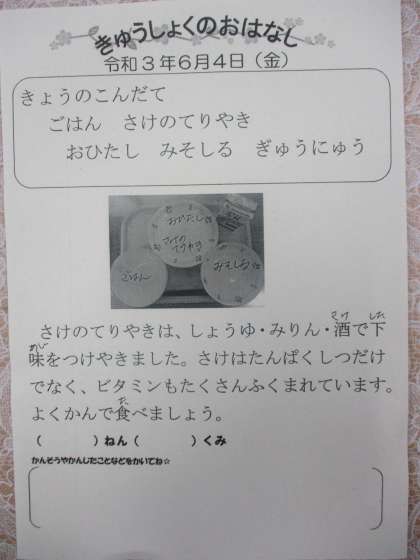 きゅうしょくのおはなし
令和3年6月4日（金）
きょうのこんだて
ごはん　さけのてりやき
おひたし　みそしる　ぎゅうにゅう
おひたし
さけの
てりやき
ごはん
みそしる
さけのてりやきは、しょうゆ・みりん・酒で下
味をつけやきました。さけはたんぱくしつだけ
でなく、ビタミンもたくさんふくまれています。
よくかんで食べましょう。
（　　　）ねん（　　　）くみ
かんそうやかんしたことなどをかいてね☆